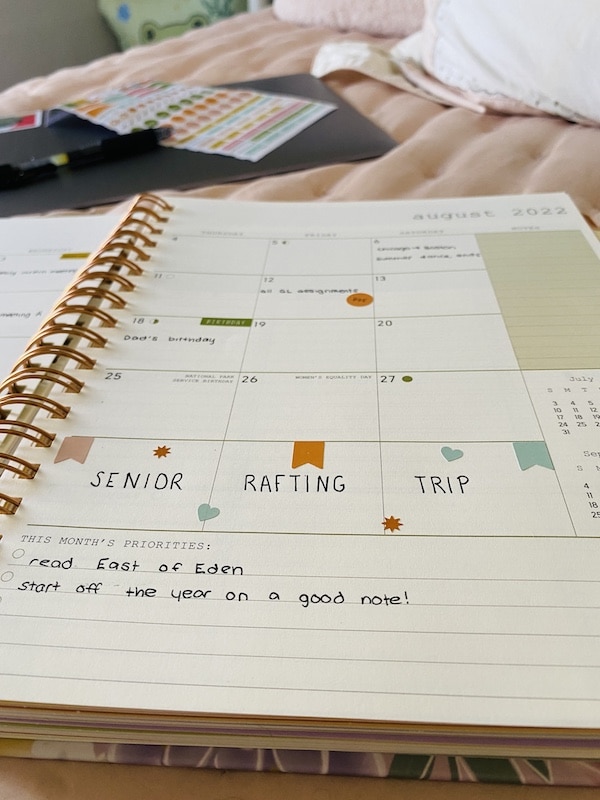 august 2022
THURSDAY FRIDAY SATURDAY NOTES
4 5 6
11 12 13
all SL assignments
18 BIRTHDAY 19 20
Dad's birthday
25 NATIONAL PARK SERVICE BIRTHDAY 26 WOMEN'S EQUALITY DAY 27
July
S M T
3 4 5
10 11 12
17 18 19
24 25 26
31
SENIOR RAFTING TRIP
THIS MONTH'S PRIORITIES:
read East of Eden
start off the year on a good note!